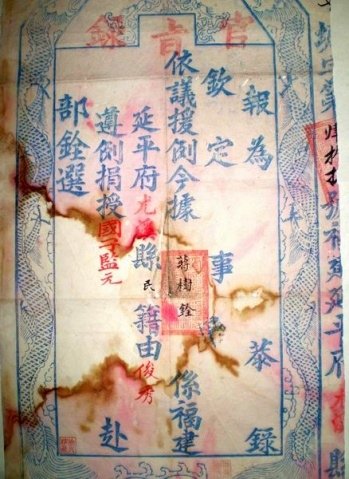 官錄
號福建延平府 縣
報為 恭錄
欽定 事
依議援例今據 蔣樹銓 係福建
延平府尤溪縣民籍由俊秀
遵例捐授國子監元 赴
部銓選